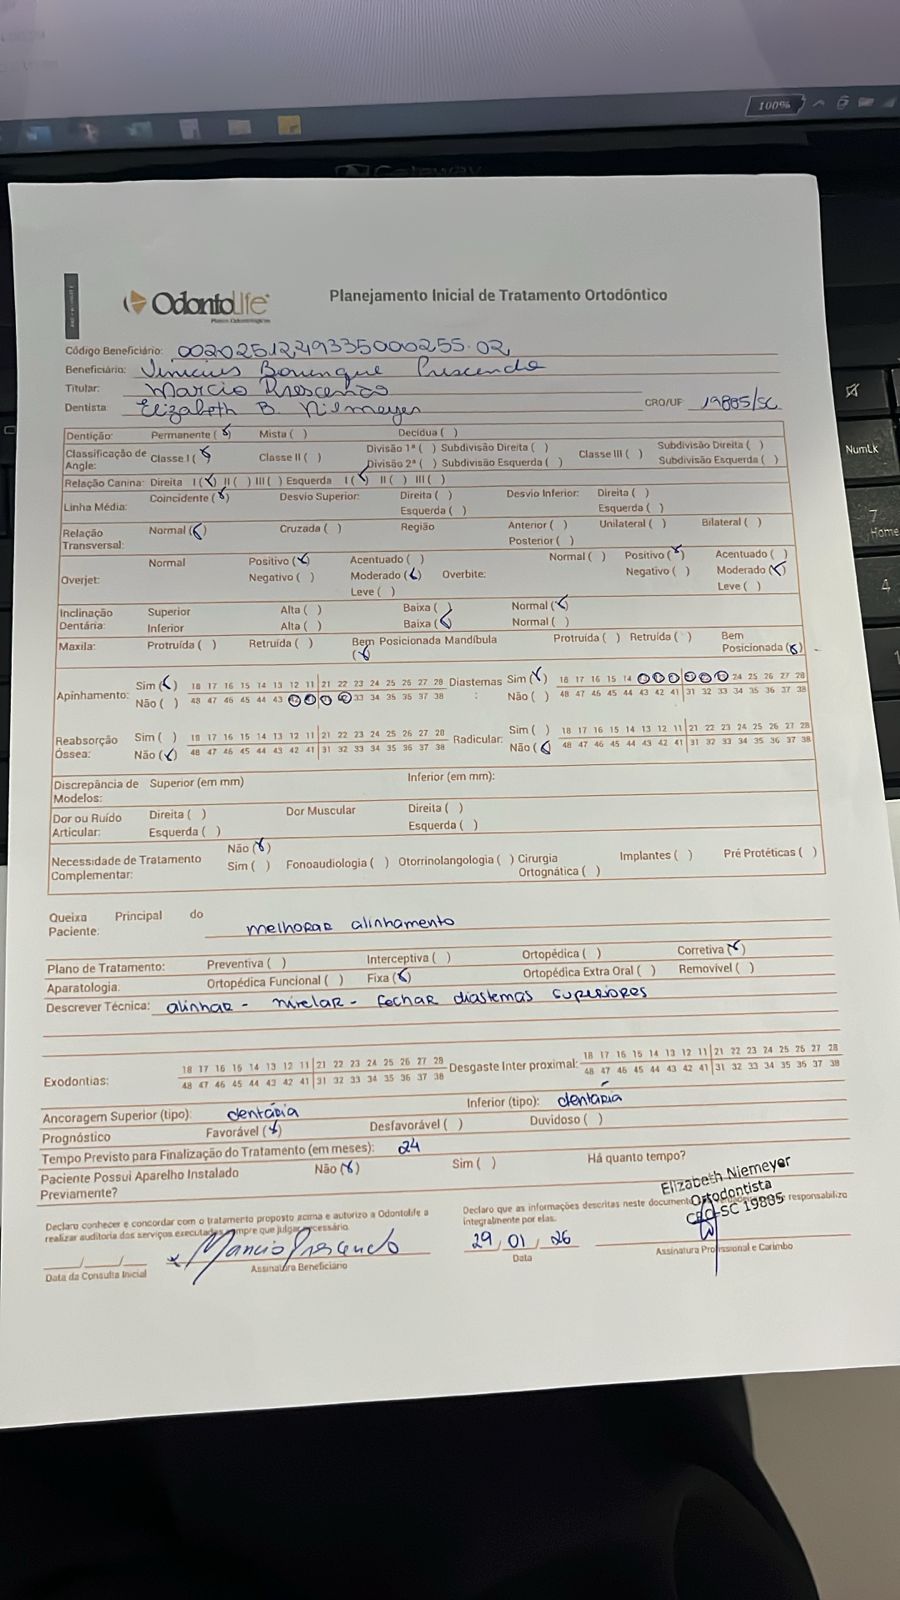 100%
Gateway
NumLk
7
Home
4
1
OdontoLife
Planos Odontológicos
Planejamento Inicial de Tratamento Ortodôntico
Código Beneficiário: 00202512249335000255.02
Beneficiário: Vinicius Prescendo
Titular: Marcio Prescendo
Dentista: Elizabeth B. Niemeyer CRO/UF 19885/SC
Dentição: Permanente (x) Mista ( ) Decídua ( )
Classificação de Angle: Classe I (x) Classe II ( ) Divisão 1ª ( ) Subdivisão Direita ( ) Divisão 2ª ( ) Subdivisão Esquerda ( ) Classe III ( ) Subdivisão Direita ( ) Subdivisão Esquerda ( )
Relação Canina: Direita I (x) II ( ) III ( ) Esquerda I (x) II ( ) III ( )
Linha Média: Coincidente (x) Desvio Superior: Direita ( ) Esquerda ( ) Desvio Inferior: Direita ( ) Esquerda ( )
Relação Transversal: Normal (x) Cruzada ( ) Região Anterior ( ) Posterior ( ) Unilateral ( ) Bilateral ( )
Overjet: Normal Positivo (x) Negativo ( ) Acentuado ( ) Moderado (x) Leve ( ) Overbite: Normal ( ) Positivo (x) Negativo ( ) Acentuado ( ) Moderado (x) Leve ( )
Inclinação Dentária: Superior Alta ( ) Baixa ( ) Normal (x)
Inferior Alta ( ) Baixa (x) Normal ( )
Maxila: Protruída ( ) Retruída ( ) Bem Posicionada (x) Mandíbula Protruída ( ) Retruída ( ) Bem Posicionada (x)
Apinhamento: Sim (x) 18 17 16 15 14 13 12 11 21 22 23 24 25 26 27 28 Diastemas: Sim (x) 18 17 16 15 14 24 25 26 27 28
Não ( ) 48 47 46 45 44 43 33 34 35 36 37 38 Não ( ) 48 47 46 45 44 43 42 41 31 32 33 34 35 36 37 38
Reabsorção Óssea: Sim ( ) 18 17 16 15 14 13 12 11 21 22 23 24 25 26 27 28 Radicular: Sim ( ) 18 17 16 15 14 13 12 11 21 22 23 24 25 26 27 28
Não (x) 48 47 46 45 44 43 42 41 31 32 33 34 35 36 37 38 Não (x) 48 47 46 45 44 43 42 41 31 32 33 34 35 36 37 38
Discrepância de Modelos: Superior (em mm) Inferior (em mm):
Dor ou Ruído Articular: Direita ( ) Esquerda ( ) Dor Muscular Direita ( ) Esquerda ( )
Necessidade de Tratamento Complementar: Não (x) Sim ( ) Fonoaudiologia ( ) Otorrinolangologia ( ) Cirurgia Ortognática ( ) Implantes ( ) Pré Protéticas ( )
Queixa Principal do Paciente: melhorar alinhamento
Plano de Tratamento: Preventiva ( ) Interceptiva ( ) Ortopédica ( ) Corretiva (x)
Aparatologia: Ortopédica Funcional ( ) Fixa (x) Ortopédica Extra Oral ( ) Removível ( )
Descrever Técnica: alinhar - nivelar - fechar diastemas superiores
Exodontias: 18 17 16 15 14 13 12 11 21 22 23 24 25 26 27 28 Desgaste Inter proximal: 18 17 16 15 14 13 12 11 21 22 23 24 25 26 27 28
48 47 46 45 44 43 42 41 31 32 33 34 35 36 37 38 48 47 46 45 44 43 42 41 31 32 33 34 35 36 37 38
Ancoragem Superior (tipo): dentária Inferior (tipo): dentária
Prognóstico Favorável (x) Desfavorável ( ) Duvidoso ( )
Tempo Previsto para Finalização do Tratamento (em meses): 24
Paciente Possui Aparelho Instalado Previamente? Não (x) Sim ( ) Há quanto tempo?
Declaro conhecer e concordar com o tratamento proposto acima e autorizo a Odontolife a
realizar auditoria dos serviços executados sempre que julgar necessário.
Declaro que as informações descritas neste documento responsabilizo
integralmente por elas.
Elizabeth Niemeyer
Ortodontista
CRO-SC 19885
Marcio Prescendo
29/01/26
Data da Consulta Inicial
Assinatura Beneficiário
Data
Assinatura Profissional e Carimbo